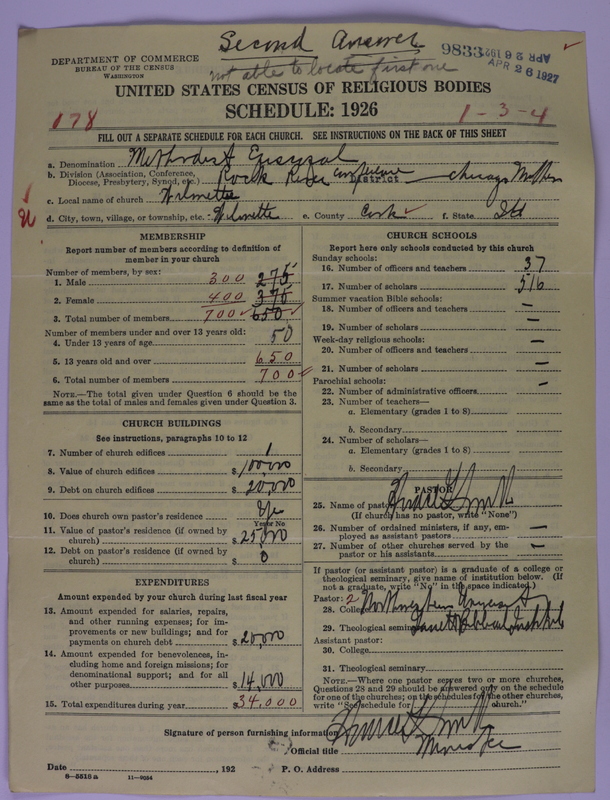 Second Answer
not able to locate first one
9833
APR 26 1927
APR 26 1927
DEPARTMENT OF COMMERCE
BUREAU OF THE CENSUS
WASHINGTON
UNITED STATES CENSUS OF RELIGIOUS BODIES
SCHEDULE: 1926
178
1-3-4
FILL OUT A SEPARATE SCHEDULE FOR EACH CHURCH. SEE INSTRUCTIONS ON THE BACK OF THIS SHEET
a. Denomination Methodist Episcopal
b. Division (Association, Conference, Diocese, Presbytery, Synod, etc.) Rock River Conference District Chicago
c. Local name of church Wilmette
d. City, town, village, or township, etc.: Wilmette e. County Cook f. State Ill
MEMBERSHIP
Report number of members according to definition of
member in your church
Number of members, by sex:
1. Male 300 275
2. Female 400 375
3. Total number of members 700 650
Number of members under and over 13 years old:
4. Under 13 years of age 50
5. 13 years old and over 650
6. Total number of members 700
NOTE.—The total given under Question 6 should be
same as the total of males and females given under Question 3.
CHURCH BUILDINGS
See instructions, paragraphs 10 to 12
7. Number of church edifices 1
8. Value of church edifices $100,000
9. Debt on church edifices $20,000
10. Does church own pastor's residence Yes
Yes or No
11. Value of pastor's residence (if owned by
church) $25,000
12. Debt on pastor's residence (if owned by
church) $0
EXPENDITURES
Amount expended by your church during last fiscal year
13. Amount expended for salaries, repairs,
and other running expenses; for im-
provements or new buildings; and for
payments on church debt $20,000
14. Amount expended for benevolences, in-
cluding home and foreign missions; for
denominational support; and for all
other purposes $14,000
15. Total expenditures during year $34,000
CHURCH SCHOOLS
Report here only schools conducted by this church
Sunday schools:
16. Number of officers and teachers 37
17. Number of scholars 516
Summer vacation Bible schools:
18. Number of officers and teachers —
19. Number of scholars —
Week-day religious schools: —
20. Number of officers and teachers
21. Number of scholars —
Parochial schools: —
22. Number of administrative officers
23. Number of teachers—
a. Elementary (grades 1 to 8)
b. Secondary
24. Number of scholars—
a. Elementary (grades 1 to 8)
b. Secondary
PASTOR
25. Name of pastor Horace G. Smith
(If church has no pastor, write "None")
26. Number of ordained ministers, if any, em-
ployed as assistant pastors —
27. Number of other churches served by the
pastor or his assistants —
If pastor (or assistant pastor) is a graduate of a college or
theological seminary, give name of institution below. (If
not a graduate, write "No" in the space indicated.)
Pastor: 2
28. College Northwestern University
29. Theological seminary Garrett Biblical Institute
Assistant pastor:
30. College
31. Theological seminary
NOTE.—Where one pastor serves two or more churches,
Questions 28 and 29 should be answered only on the schedule
for one of the churches; on the schedules for the other churches,
write "See schedule for church."
Signature of person furnishing information Horace G. Smith
Official title Minister
Date , 192 P. O. Address
6—5518a 11—9034